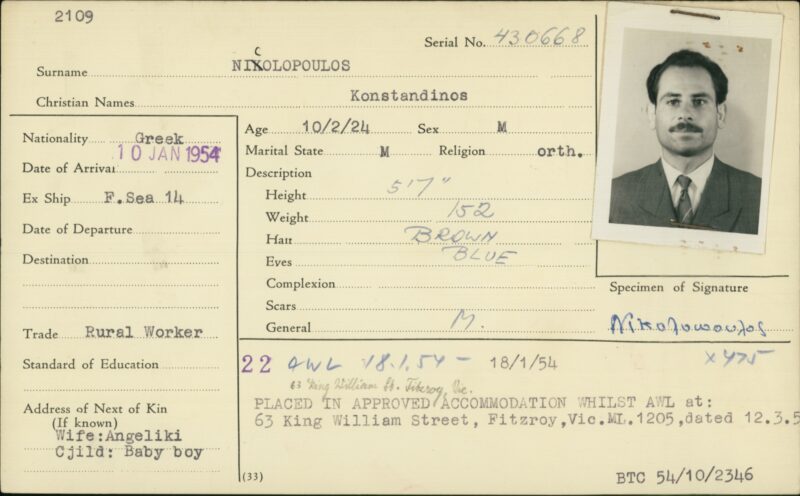 2109
Serial No. 430668
Surname NIKOLOPOULOS
C
Christian Names Konstandinos
Nationality Greek
Date of Arrival 10 JAN 1954
Ex Ship F.Sea 14
Date of Departure
Destination
Trade Rural Worker
Standard of Education
Address of Next of Kin
(If known)
Wife:Angeliki
Cjild: Baby boy
Age 10/2/24 Sex M
Marital State M Religion orth.
Description
Height 5'7"
Weight 152
Hair BROWN
Eyes BLUE
Complexion
Scars
General M.
Specimen of Signature
Νικολοπουλος
22 AWL 18.1.54 - 18/1/54 x475
63 King William St. Fitzroy, Vic.
PLACED IN APPROVED ACCOMMODATION WHILST AWL at:
63 King William Street, Fitzroy,Vic.ML.1205,dated 12.3.5
(33)
BTC 54/10/2346